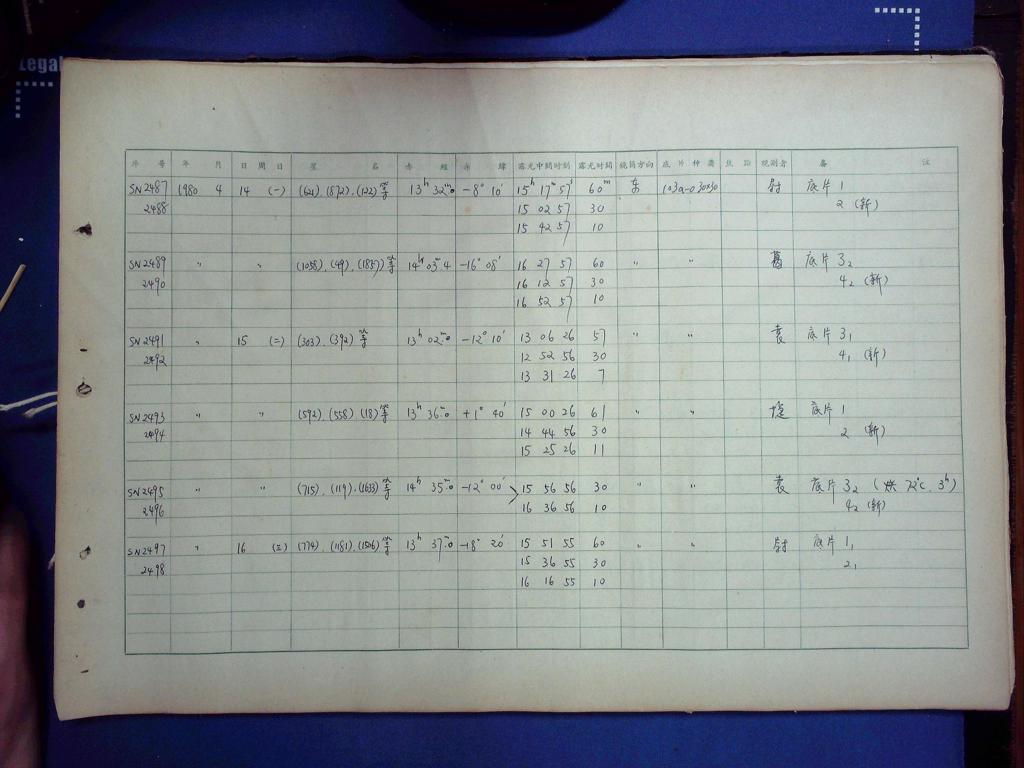 Legal
序号 年 月 日 周日 星名 赤经 赤纬 露光中间时刻 露光时间 镜筒方向 底片种类 焦距 观测者 备注
SN2487 1980 4 14 (一) (621).(872).(122)等 13h 32m.0 -8° 10' 15h 17m 57s 60m 东 103a-o 30x30 尉 底片 1
2488 15 02 57 30 2 (新)
15 42 57 10
SN2489 " " (1058).(49).(1857)等 14h 03m.4 -16° 08' 16 27 57 60 " " 葛 底片 3₂
2490 16 12 57 30 4₂ (新)
16 52 57 10
SN2491 " 15 (二) (303).(392)等 13h 02m.0 -12° 10' 13 06 26 57 " " 袁 底片 3₁
2492 12 52 56 30 4₁ (新)
13 31 26 7
SN2493 " " (592).(558).(18)等 13h 36m.0 +1° 40' 15 00 26 61 " " 底片 1
2494 14 44 56 30 2 (新)
15 25 26 11
SN2495 " " (715).(119).(1633)等 14h 35m.0 -12° 00' 15 56 56 30 袁 底片 3₂ (烘 72°C. 3h)
2496 16 36 56 10 4₂ (新)
SN2497 " 16 (三) (774).(1181).(1506)等 13h 37m.0 -18° 20' 15 51 55 60 " " 尉 底片 1₁
2498 15 36 55 30 2₁
16 16 55 10